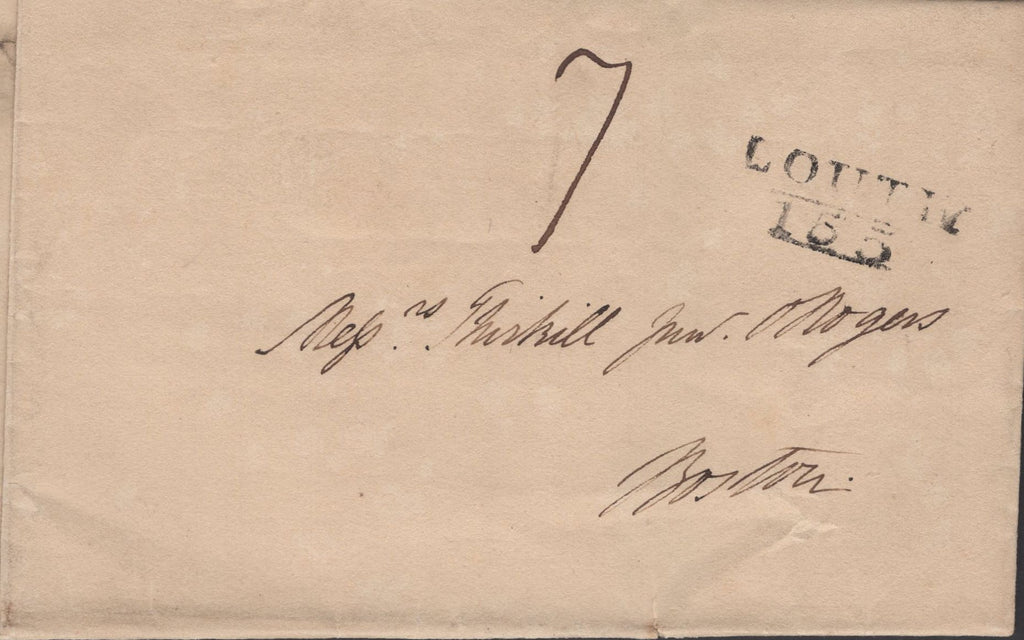 7
LOUTH
155
Messrs. Thirkill Junr. & Rogers
Boston.